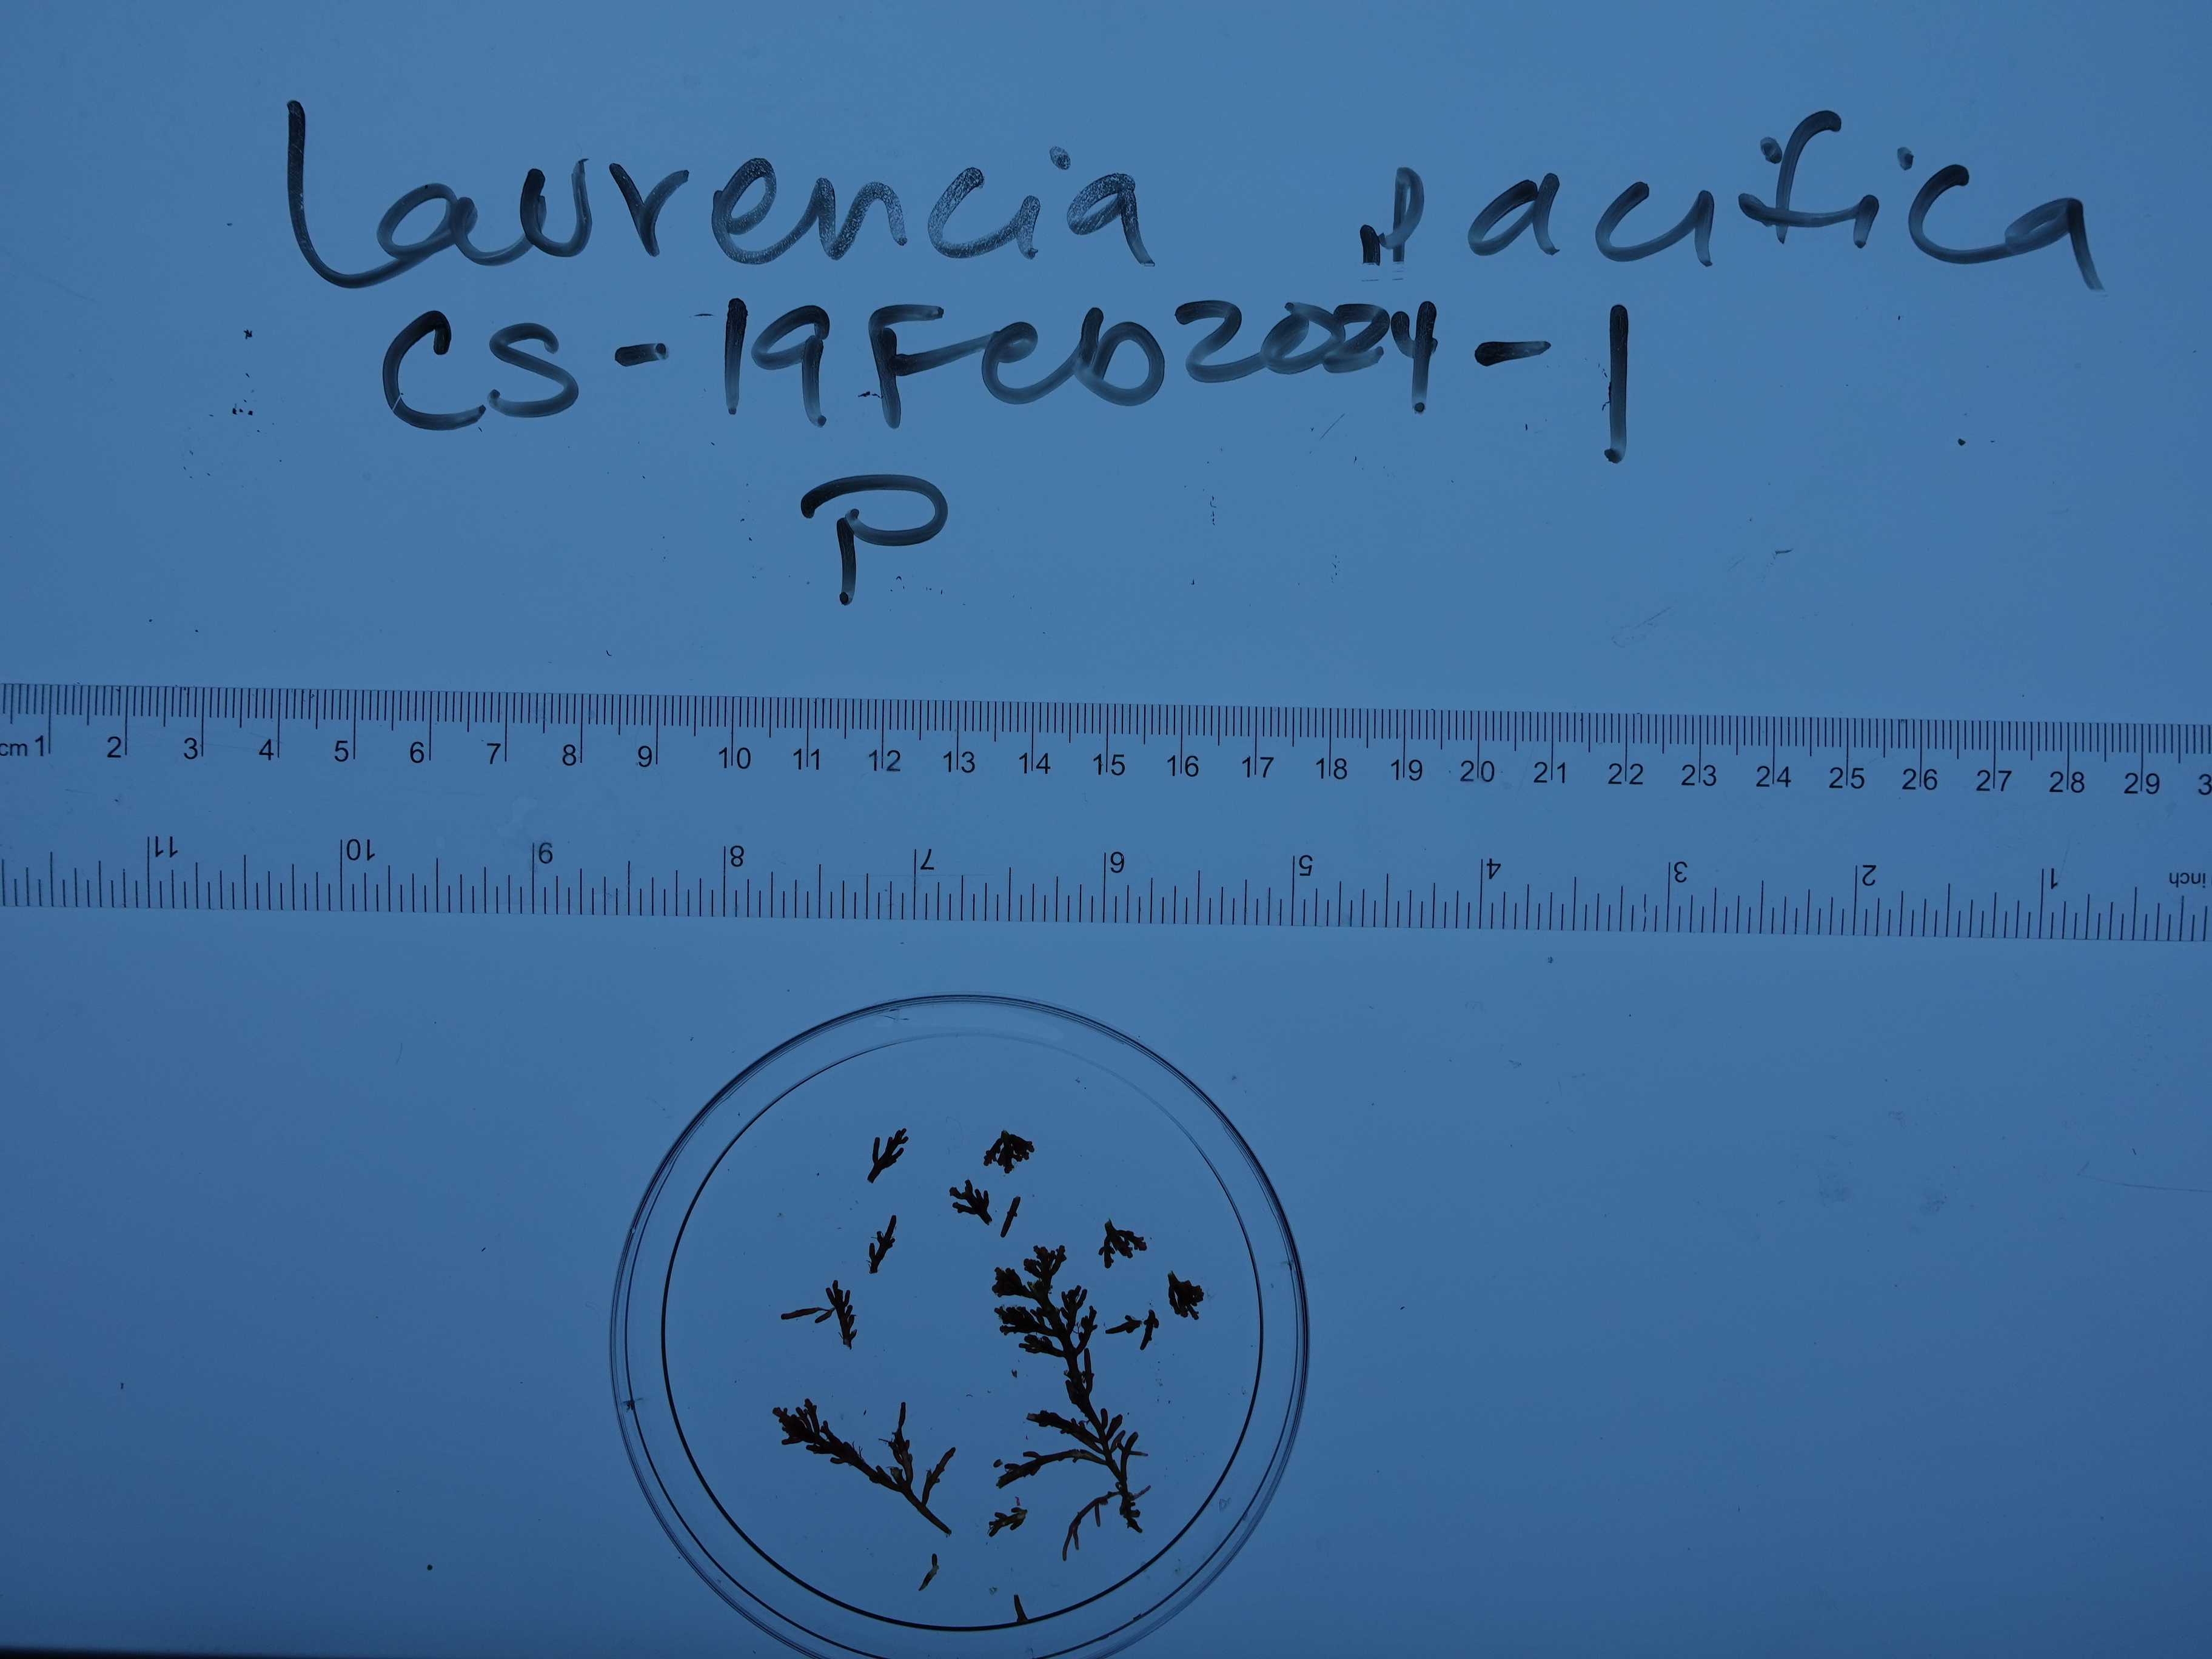 Laurencia pacifica
CS-19Feb2024-1
P
cm 1 2 3 4 5 6 7 8 9 10 11 12 13 14 15 16 17 18 19 20 21 22 23 24 25 26 27 28 29 3
11 10 9 8 7 6 5 4 3 2 1 inch